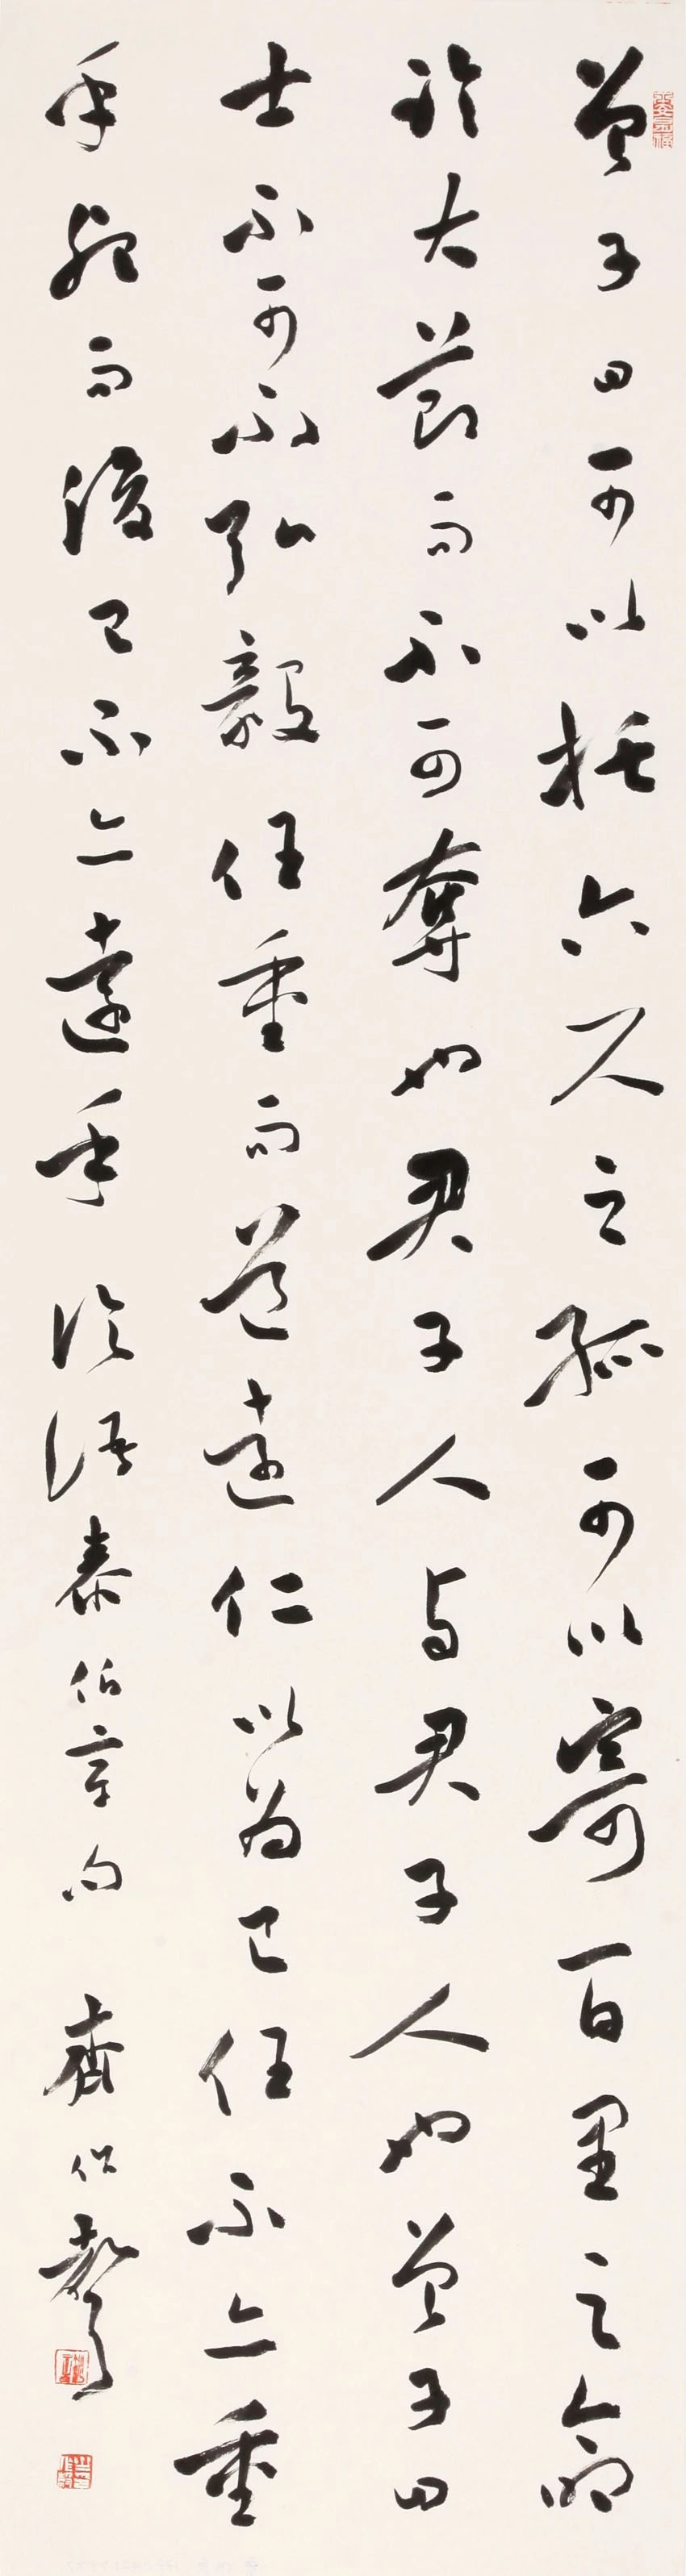 曾子曰可以托六尺之孤可以寄百里之命
臨大節而不可奪也君子人与君子人也曾子曰
士不可不弘毅任重而道遠仁以為己任不亦重
乎死而後已不亦遠乎 論語泰伯章句